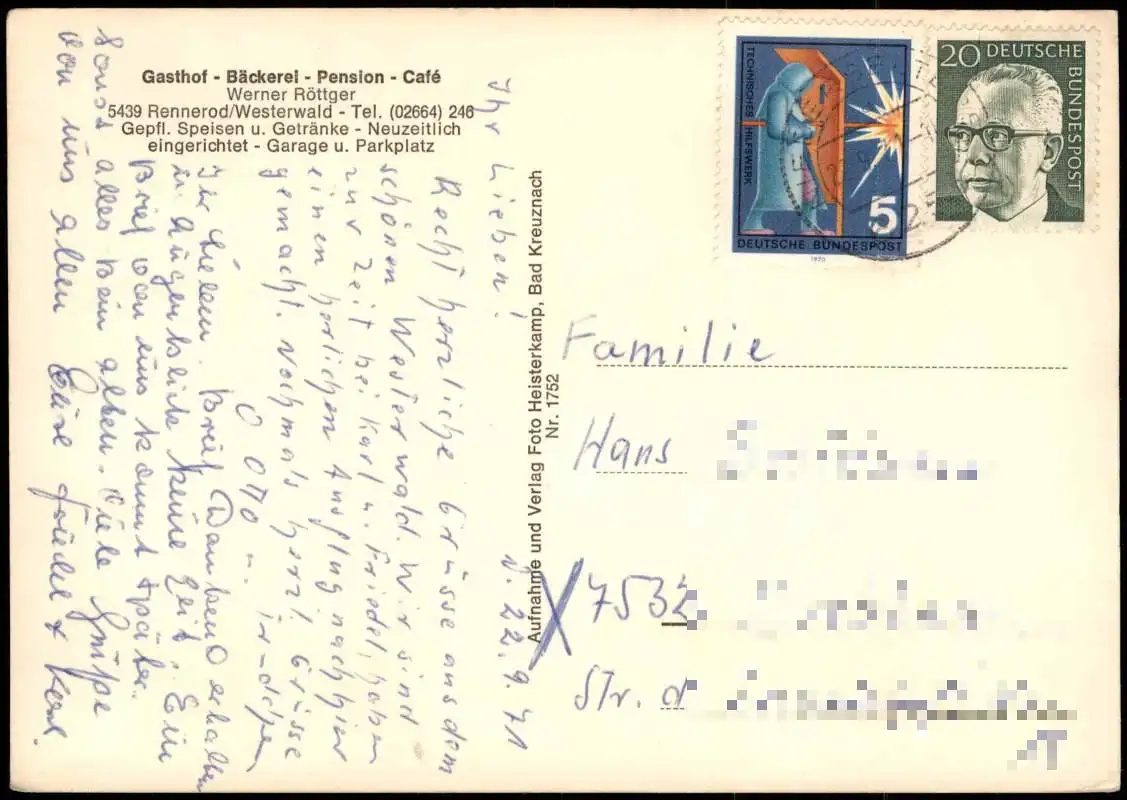 Gasthof - Bäckerei - Pension - Café
Werner Röttger
5439 Rennerod/Westerwald - Tel. (02664) 246
Gepfl. Speisen u. Getränke - Neuzeitlich
eingerichtet - Garage u. Parkplatz
d. 22.9.71
Ihr Lieben!
Recht herzliche Grüsse aus dem
schönen Westerwald. Wir sind
zur Zeit bei Karl u. Friedel, haben
einen herlichen Ausflug nach hier
gemacht. Nochmals herzl. Grüsse
Otto u.
Ihr Lieben. Brief dankend erhalten
im Augenblick keine Zeit. Ein
Brief von uns kommt später.
Sonst alles beim alten. Viele Grüße
von uns allen Eure Friedel & Karl.
Aufnahme und Verlag Foto Heisterkamp, Bad Kreuznach
Nr. 1752
TECHNISCHES HILFSWERK
5
DEUTSCHE BUNDESPOST
1970
20 DEUTSCHE
BUNDESPOST
Familie
Hans
7532
Str. d